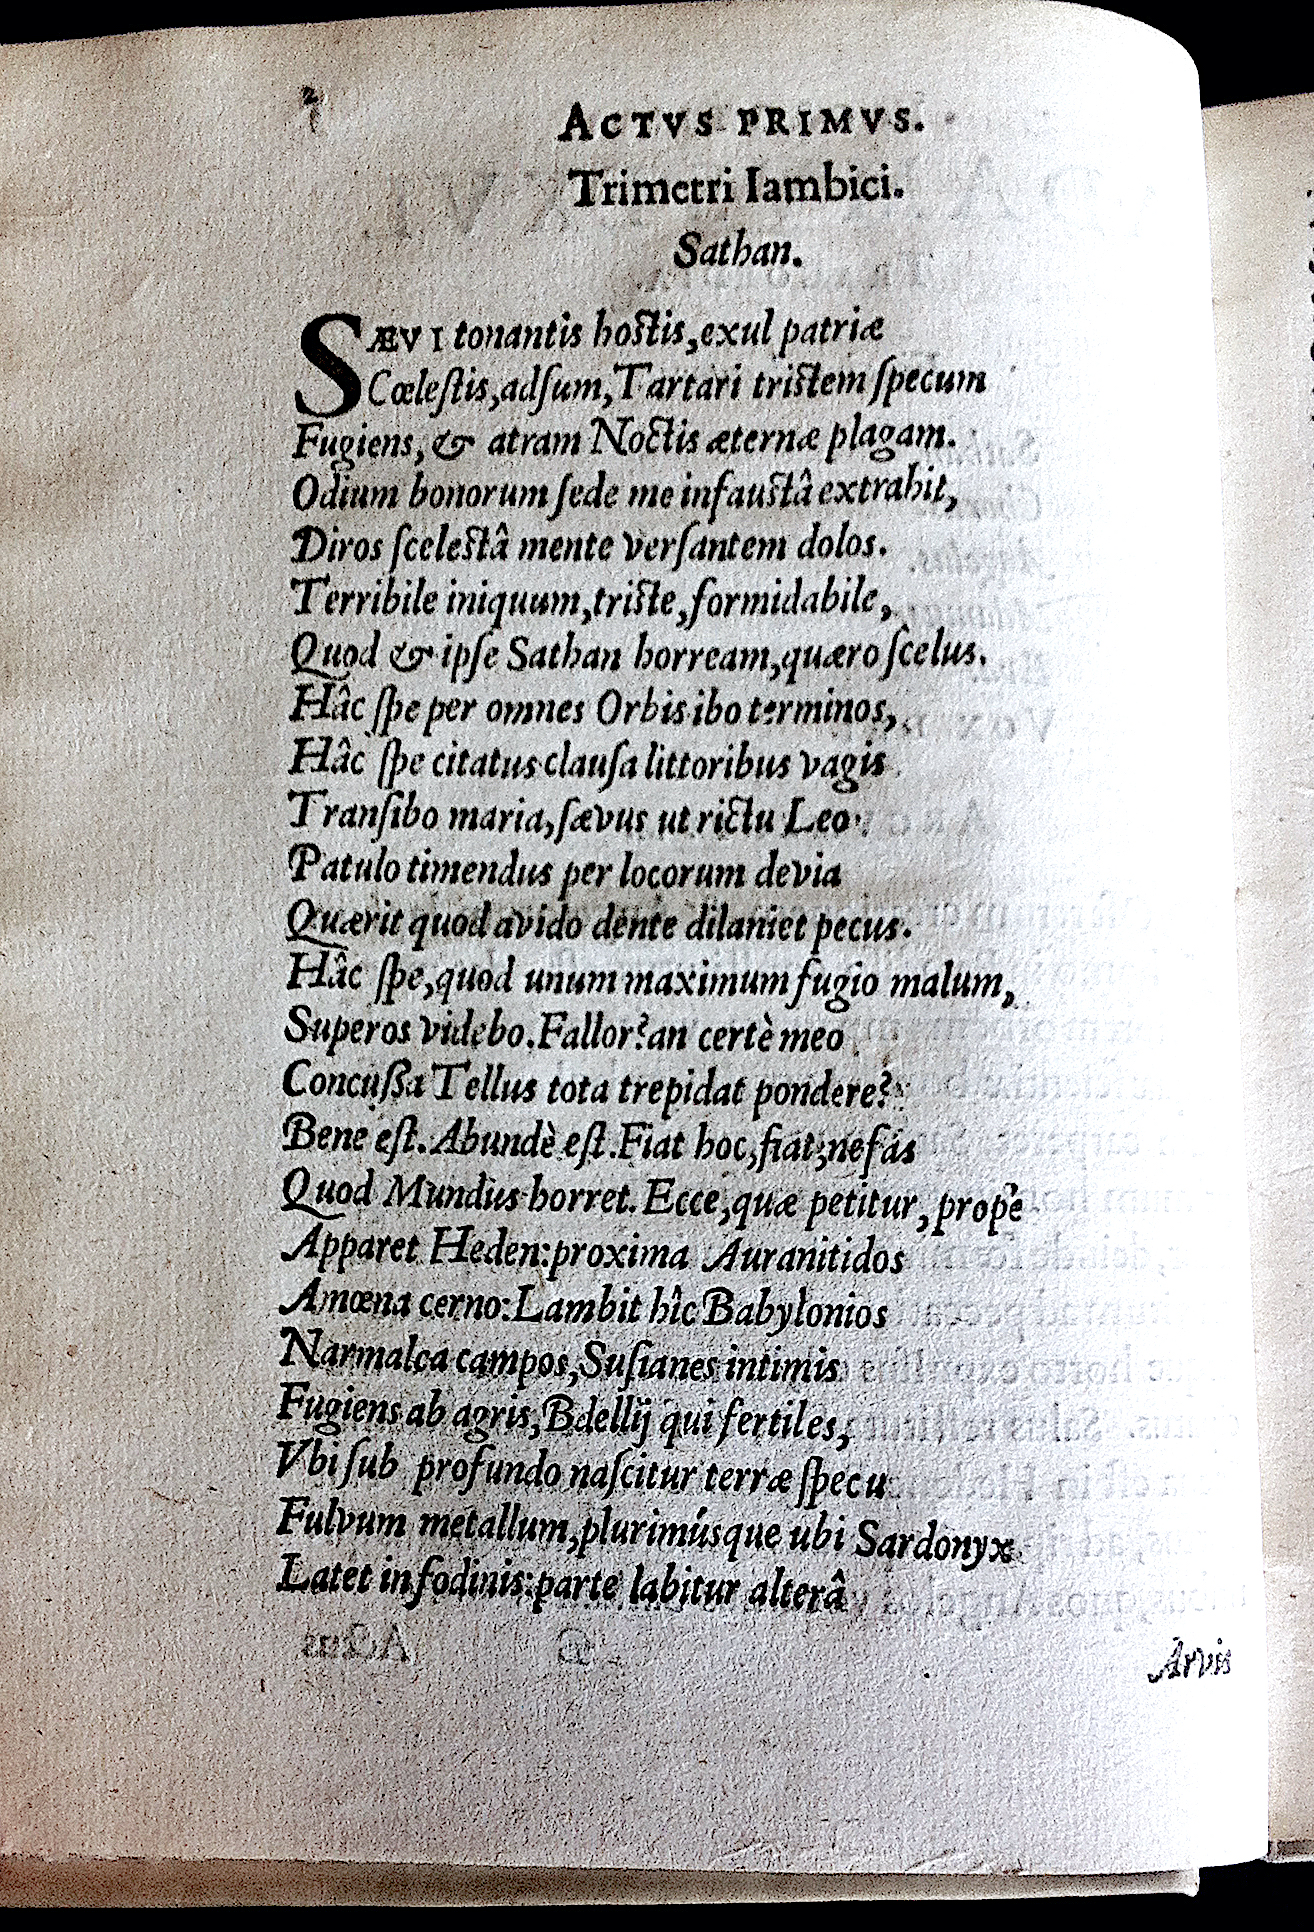 2
ACTVS PRIMVS.
Trimetri Iambici.
Sathan.
SÆVI tonantis hostis, exul patriæ
Cœlestis, adsum, Tartari tristem specum
Fugiens, & atram Noctis æternæ plagam.
Odium bonorum sede me infaustâ extrahit,
Diros scelestâ mente versantem dolos.
Terribile iniquum, triste, formidabile,
Quod & ipse Sathan horream, quæro scelus.
Hâc spe per omnes Orbis ibo terminos,
Hâc spe citatus clausa littoribus vagis
Transibo maria, sævus ut rictu Leo
Patulo timendus per locorum devia
Quærit quod avido dente dilaniet pecus.
Hâc spe, quod unum maximum fugio malum,
Superos videbo. Fallor? an certè meo
Concußa Tellus tota trepidat pondere?
Bene est. Abundè est. Fiat hoc, fiat; nefas
Quod Mundus horret. Ecce, quæ petitur, propè
Apparet Heden: proxima Auranitidos
Amœna cerno: Lambit hîc Babylonios
Narmalca campos, Susianes intimis
Fugiens ab agris, Bdellij qui fertiles,
Vbi sub profundo nascitur terræ specu
Fulvum metallum, plurimúsque ubi Sardonyx
Latet in fodinis: parte labitur alterâ
Arvis